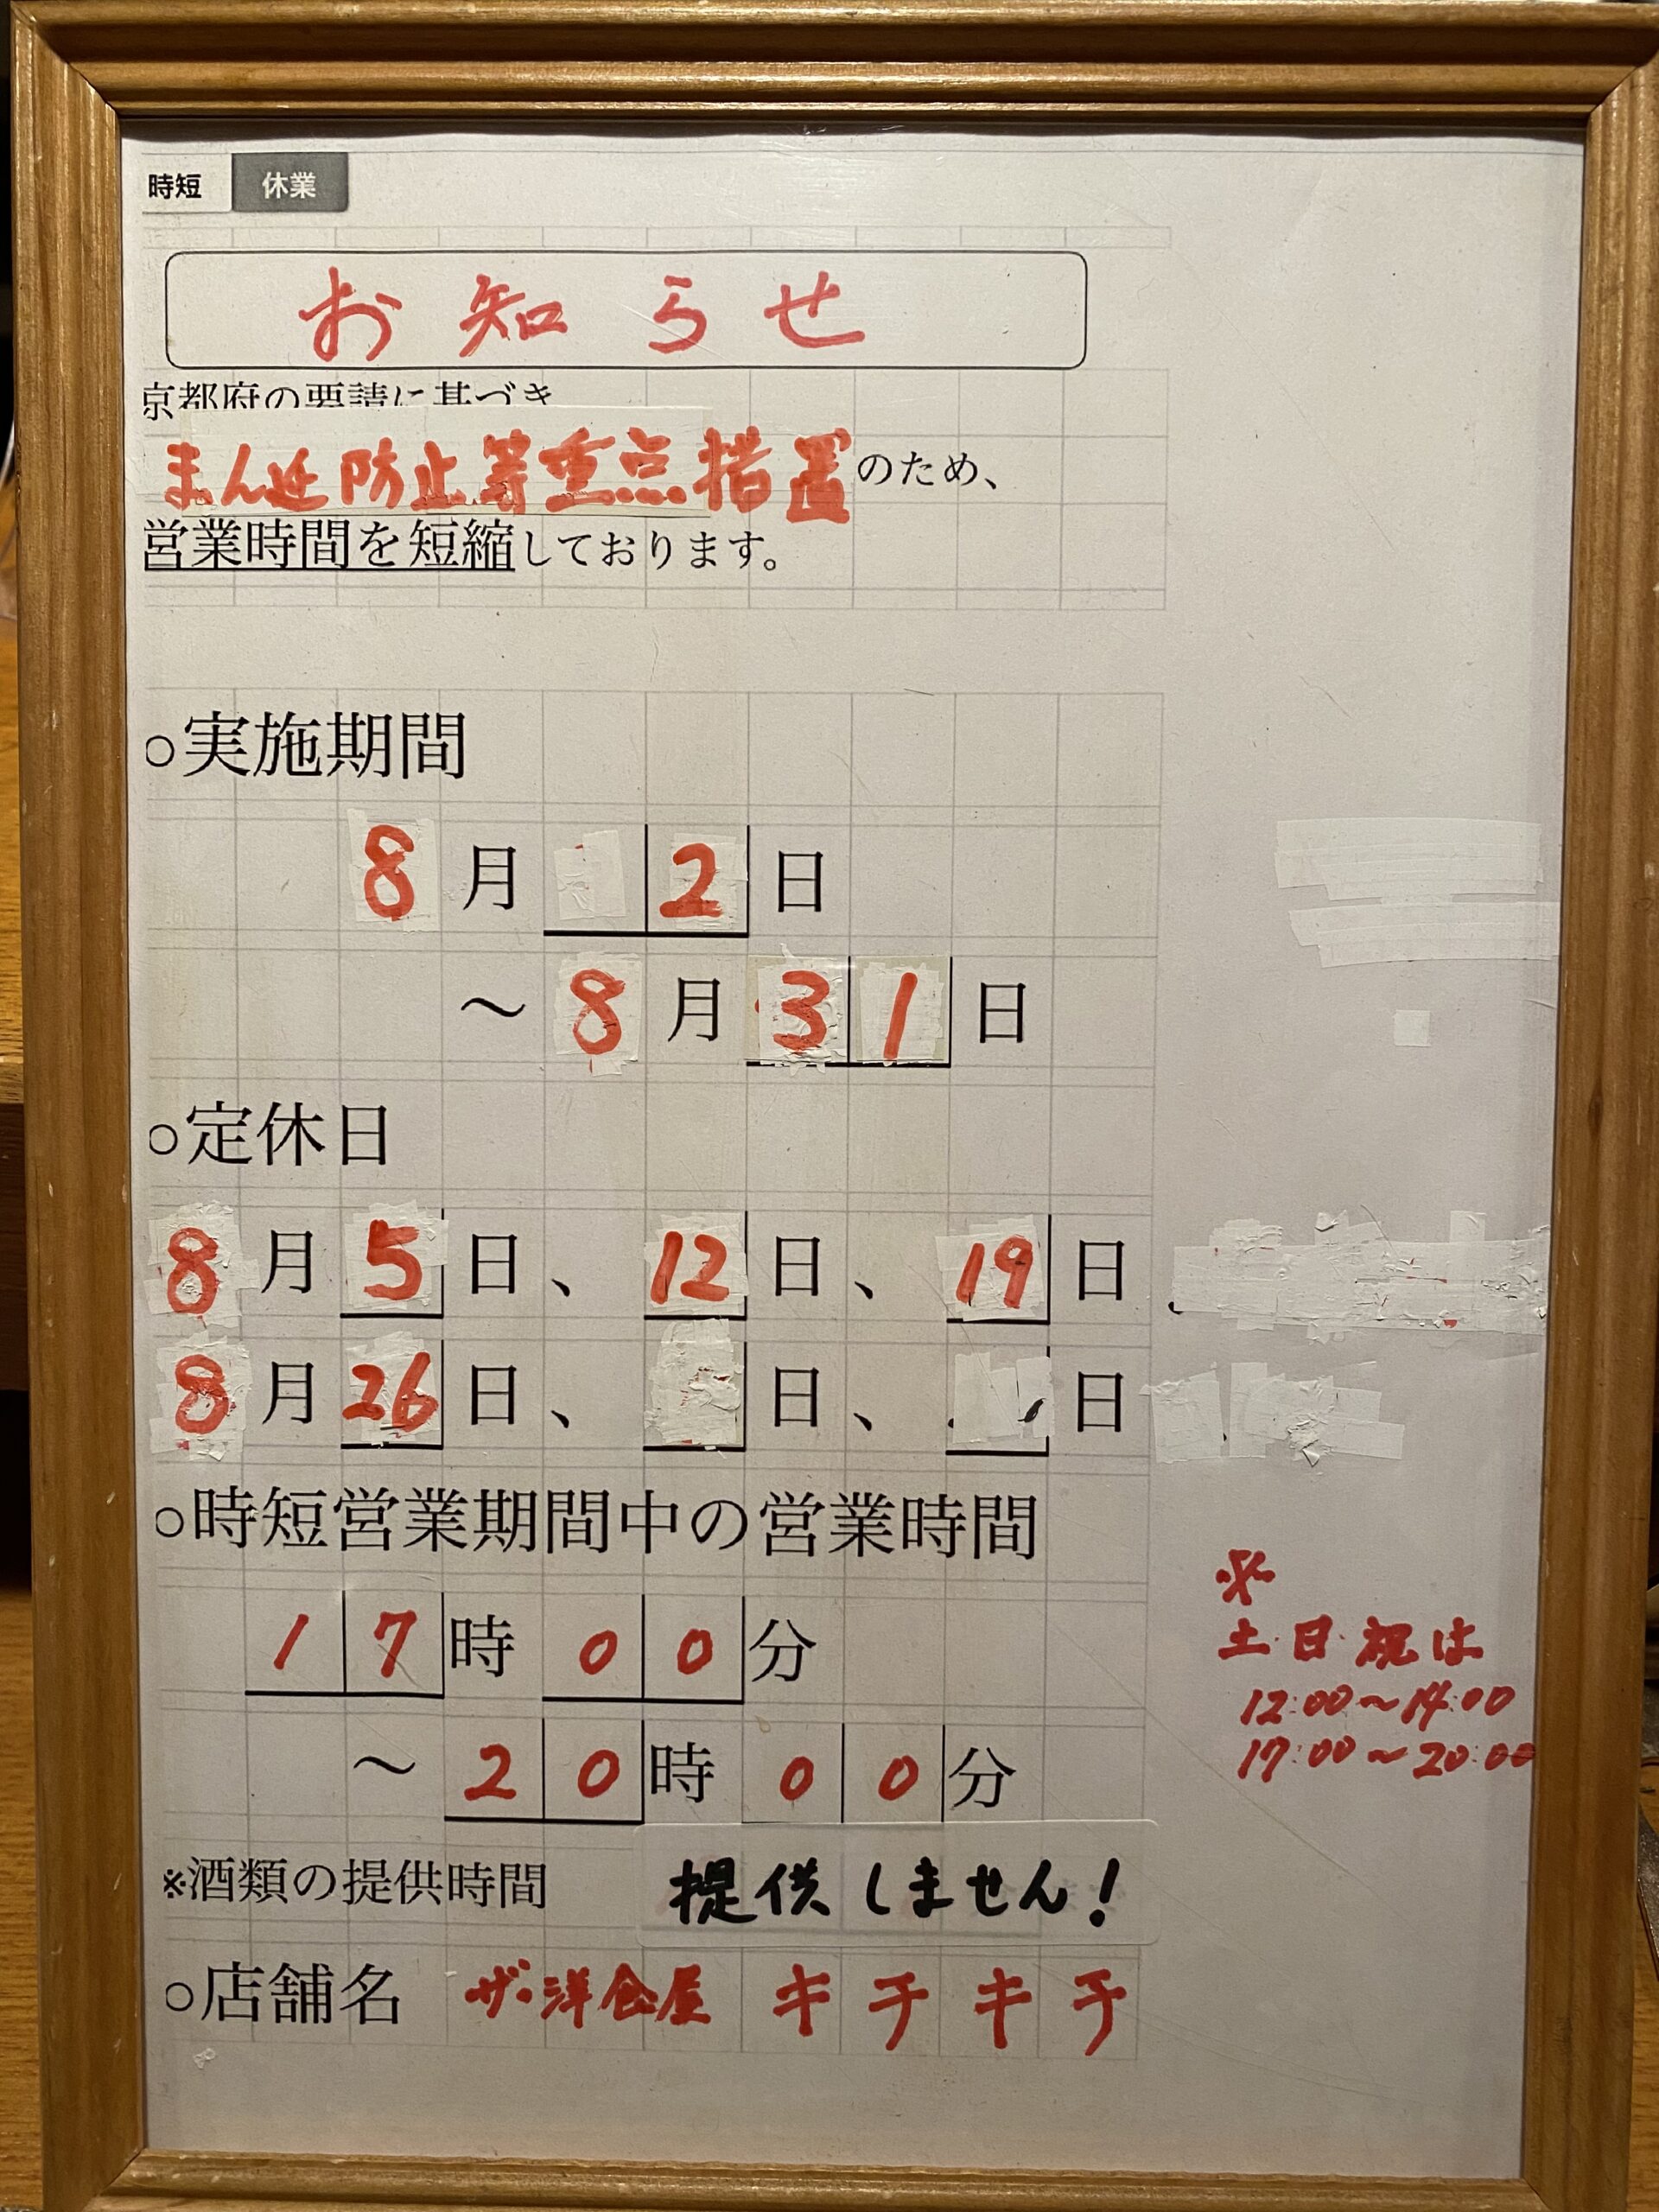 時短 休業
お知らせ
京都府の要請に基づき
まん延防止等重点措置のため、
営業時間を短縮しております。
○実施期間
8月2日
～8月31日
○定休日
8月5日、12日、19日
8月26日、 日、 日
○時短営業期間中の営業時間
17時00分
～20時00分
※
土・日・祝は
12:00～14:00
17:00～20:00
※酒類の提供時間 提供しません！
○店舗名 ザ・洋食屋 キチキチ